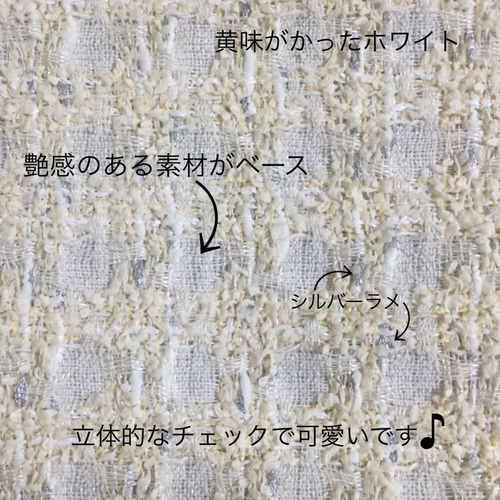 黄味がかったホワイト
艶感のある素材がベース
シルバーラメ
立体的なチェックで可愛いです♪